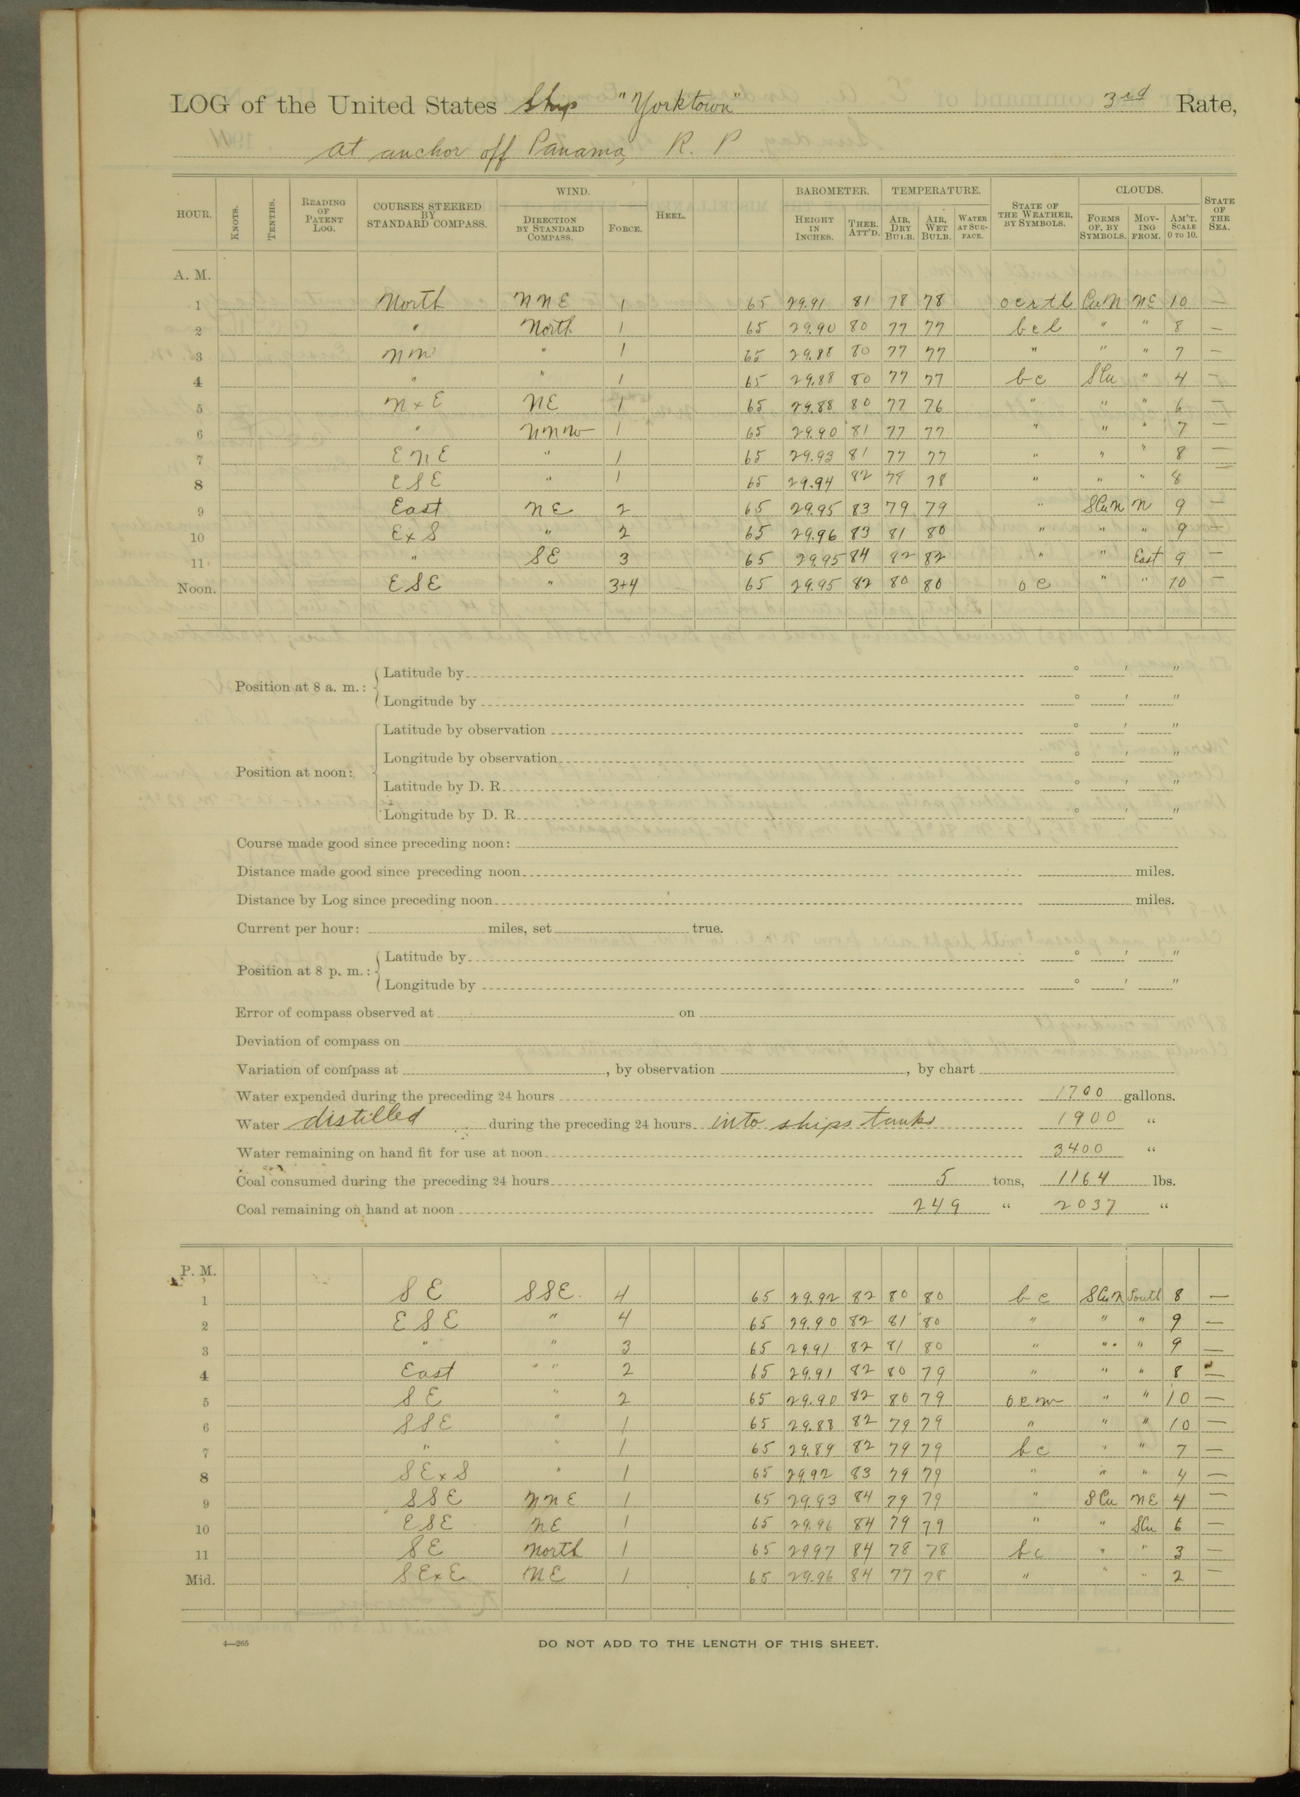 LOG of the United States Ship "Yorktown" 3rd Rate,
at anchor off Panama, R. P.
HOUR. KNOTS. TENTHS. READING OF PATENT LOG. COURSES STEERED BY STANDARD COMPASS. WIND. DIRECTION BY STANDARD COMPASS. FORCE. HEEL. BAROMETER. HEIGHT IN INCHES. THER. ATT'D. TEMPERATURE. AIR, DRY BULB. AIR, WET BULB. WATER AT SURFACE. STATE OF THE WEATHER, BY SYMBOLS. CLOUDS. FORMS OF, BY SYMBOLS. MOVING FROM. AM'T. SCALE 0 TO 10. STATE OF THE SEA.
A. M.
1 North NNE 1 65 29.91 81 78 78 ocrtl CuN NE 10 —
2 " North 1 65 29.90 80 77 77 bcl " " 8 —
3 NW " 1 65 29.88 80 77 77 " " " 7 —
4 " " 1 65 29.88 80 77 77 bc SCu " 4 —
5 NxE NE 1 65 29.88 80 77 76 " " " 6 —
6 " NNW 1 65 29.90 81 77 77 " " " 7 —
7 ENE " 1 65 29.93 81 77 77 " " " 8 —
8 ESE " 1 65 29.94 82 78 78 " " " 8
9 East NE 2 65 29.95 83 79 79 " SCuN N 9 —
10 ExS " 2 65 29.96 83 81 80 " " " 9 —
11 " SE 3 65 29.95 84 82 82 " " East 9 —
Noon. ESE " 3+4 65 29.95 82 80 80 oc " " 10 —
Position at 8 a. m.: Latitude by ° ′ ″
Longitude by ° ′ ″
Position at noon: Latitude by observation ° ′ ″
Longitude by observation ° ′ ″
Latitude by D. R. ° ′ ″
Longitude by D. R. ° ′ ″
Course made good since preceding noon:
Distance made good since preceding noon miles.
Distance by Log since preceding noon miles.
Current per hour: miles, set true.
Position at 8 p. m.: Latitude by ° ′ ″
Longitude by ° ′ ″
Error of compass observed at on
Deviation of compass on
Variation of compass at , by observation , by chart
Water expended during the preceding 24 hours 1700 gallons.
Water distilled during the preceding 24 hours into ships tanks 1900 "
Water remaining on hand fit for use at noon 3400 "
Coal consumed during the preceding 24 hours 5 tons, 1164 lbs.
Coal remaining on hand at noon 249 " 2037 "
P. M.
1 SE SSE. 4 65 29.92 82 80 80 bc SCuN South 8 —
2 ESE " 4 65 29.90 82 81 80 " " " 9 —
3 " " 3 65 29.91 82 81 80 " " " 9 —
4 East " " 2 65 29.91 82 80 79 " " " 8 —
5 SE " 2 65 29.90 82 80 79 " " 10 —
6 SSE " 1 65 29.88 82 79 79 " " " 10 —
7 " " 1 65 29.89 82 79 79 bc " " 7 —
8 SExS " 1 65 29.92 83 79 79 " " " 4 —
9 SSE NNE 1 65 29.93 84 79 79 " SCu NE 4 —
10 ESE NE 1 65 29.96 84 79 79 " " 6 —
11 SE North 1 65 29.97 84 78 78 bc " " 3 —
Mid. SExE NE 1 65 29.96 84 77 78 " " " 2 —
4—265
DO NOT ADD TO THE LENGTH OF THIS SHEET.